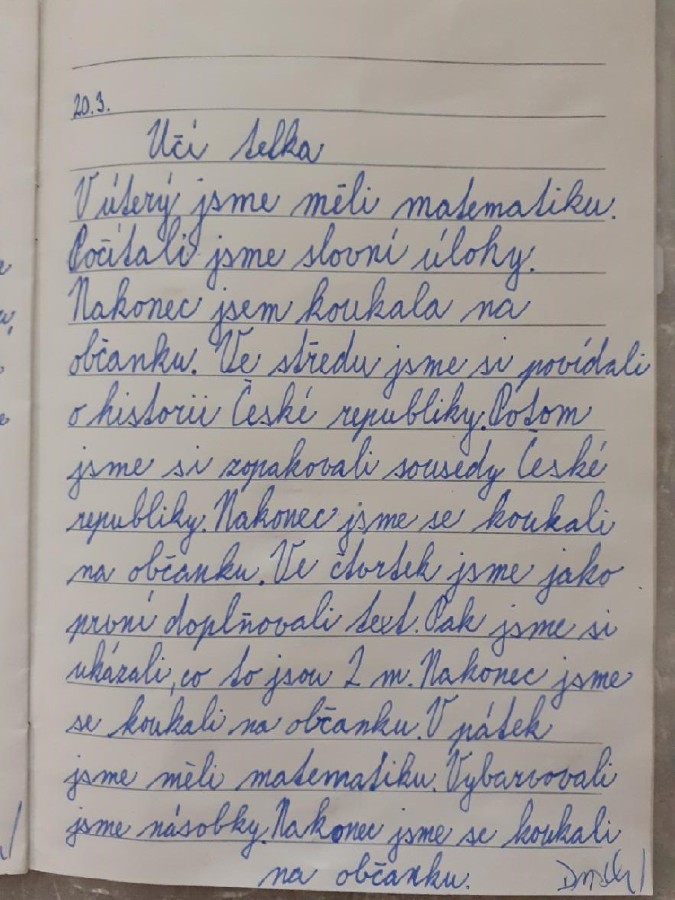 20.3.
Učí telka
V úterý jsme měli matematiku.
Počítali jsme slovní úlohy.
Nakonec jsem koukala na
občanku. Ve středu jsme si povídali
o historii České republiky. Potom
jsme si zopakovali sousedy České
republiky. Nakonec jsme se koukali
na občanku. Ve čtvrtek jsme jako
první doplňovali text. Pak jsme si
ukázali, co to jsou 2 m. Nakonec jsme
se koukali na občanku. V pátek
jsme měli matematiku. Vybarvovali
jsme násobky. Nakonec jsme se koukali
na občanku.